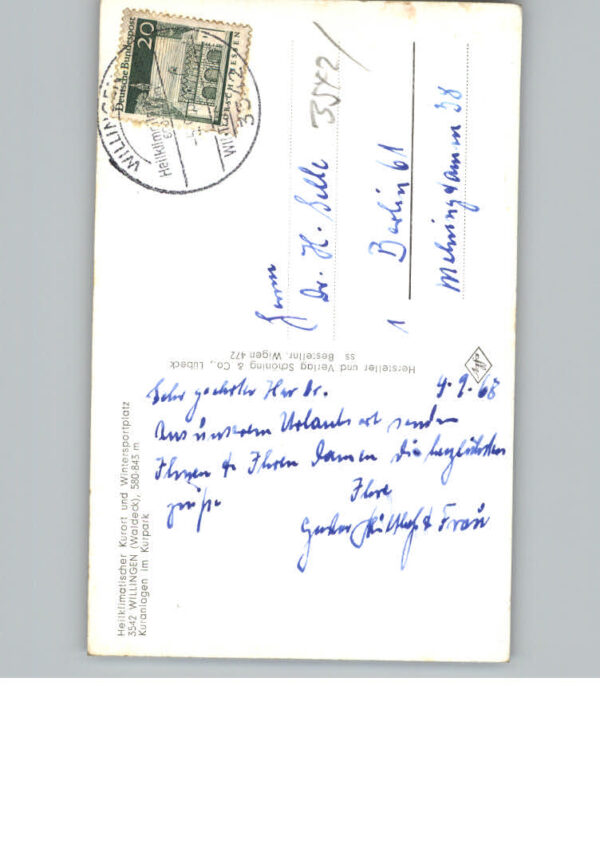 Heilklimatischer Kurort und Wintersportplatz
3542 WILLINGEN (Waldeck), 580-843 m
Kuranlagen im Kurpark
4.9.68
Sehr geehrter Herr Dr.
Aus unserem Urlaubsort senden
Ihnen & Ihren Damen die herzlichsten
Grüße
Ihre
& Frau
Hersteller und Verlag Schöning & Co., Lübeck
ss Bestellnr. Wigen 472
Agfa
Deutsche Bundespost
20
LORSCH/HESSEN
WILLINGEN
3542
3542/
Herrn
Dr. H. Selle
1 Berlin 61
Mehringdamm 38